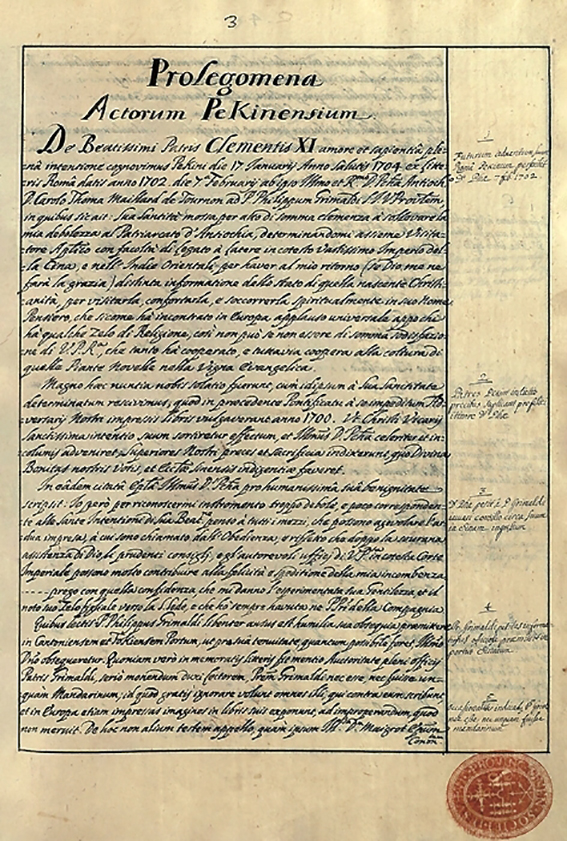 3
Prolegomena
Actorum Pekinensium
De Beatissimi Patris Clementis XI amore et sapientia, ple-
na intentione cognovimus Pekini die 17 Januarij Anno Salutis 1704 ex litte-
ris Roma datis anno 1702 die Februarij
P. Cardo Thoma Maillard de Tournon ad P. Philippum Grimaldi S.J. V. Provlem,
in quibus sic ait: Sua Santità mossa per atto di somma clemenza à sollevare la
mia debolezza al Patriarcato d'Antiochia, determinandomi assieme Visita-
tore Aplico con facoltà di Legato à Latere in cotesto Vastissimo Imperio del-
la Cina, e nell'Indie Orientale, per haver al mio ritorno (se Dio me ne
farà la grazia) distinta informatione dello stato di quella nascente Christi-
anità, per visitarla, confortarla, e soccorrerla spiritualmente in suo Nome
Pensiero, che sicome hà incontrato in Europa applauso universale appo chi
hà qualche zelo di Religione, così non può se non essere di somma sodisfazio-
ne di V.P.R.a, che tanto hà cooperato, e tuttavia coopera alla coltura di
quelle Piante Novelle nella Vigna Evangelica.
Magno hæc nuntia nobis solatio fuerunt, cum id ipsum à Sua Sanctitate
determinatum rescivimus, quod in præcedente Pontificatu à se impeditum Ad-
versarij Nostri impressis libris vulgaverant anno 1700. Ut Christi Vicarij
Sanctissima intentio suum sortiretur effectum, et celeriter et in-
columis adveniret, Superiores Nostri preces et Sacrificia indixerunt, quo Divina
Bonitas nostris Votis et Ecclæ Sinensis indigentiæ faveret.
In eâdem citatâ Eplâ pro humanissimâ suâ benignitate
scripsit: Io però per riconoscermi instromento troppo debole, e poco corrisponden-
te alle Sante Intentioni di Sua Beat. penso à tutti i mezzi, che possono agevolare l'ar-
dua impresa, à cui sono chiamato dall'Obedienza, e rifletto che doppo la securità
assistenza di Dio, i prudenti consigli, e gl'autorevoli ufficj di V.P. in cotesta Corte
Imperiale possono molto contribuire alla felicità e speditione della mia incombenza
------ prego con quella confidenza, che mi danno l'esperimentata sua Gentilezza, et il
noto suo Zelo filiale verso la S. Sede, e che hò sempre havuta ne' Pri della Compagnia.
Quibus lectis P. Philippus Grimaldi libenter ausus est humilia sua obsequia præmittere
in Cantoniensem et Fokiensem Portum, ut pro sua tenuitate, quantum possibile foret,
Dno obsequeretur. Quoniam verò in memoratis literis fit mentio Autoritate pleni officij
Patris Grimaldi, seriò monendum duxi Lectorem, Prem Grimaldi nec esse, nec fuisse un-
quam Mandarinum; id quod gratis ignorare volunt omnes illi, qui contra eum scribunt,
et in Europa etiam impressas imagines in libris suis exponunt, ad improperandum, quod
non meruit. De hoc non alium testem appello, quàm ipsum Maigrot
Conon
1
Futurum adventum
Româ Pekinum perscribit
2
Patres Pekinenses
precibus
3
petit à P. Grimaldi
consilio circa suum
4
P. Grimaldi
officiosè præmittit in
portus
5
P. Gri-
nec unquam fuisse
mandarinum